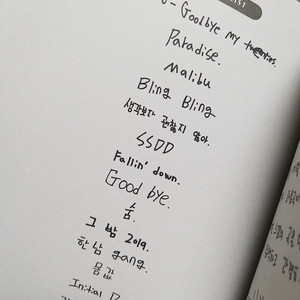 LIST
- Goodbye my twenties.
Paradise.
Malibu
Bling Bling
생각보다 괜찮지 않아.
SSDD
Fallin' down.
Good bye.
숨.
그 밤 2019.
한남 gang.
몸값
Initial